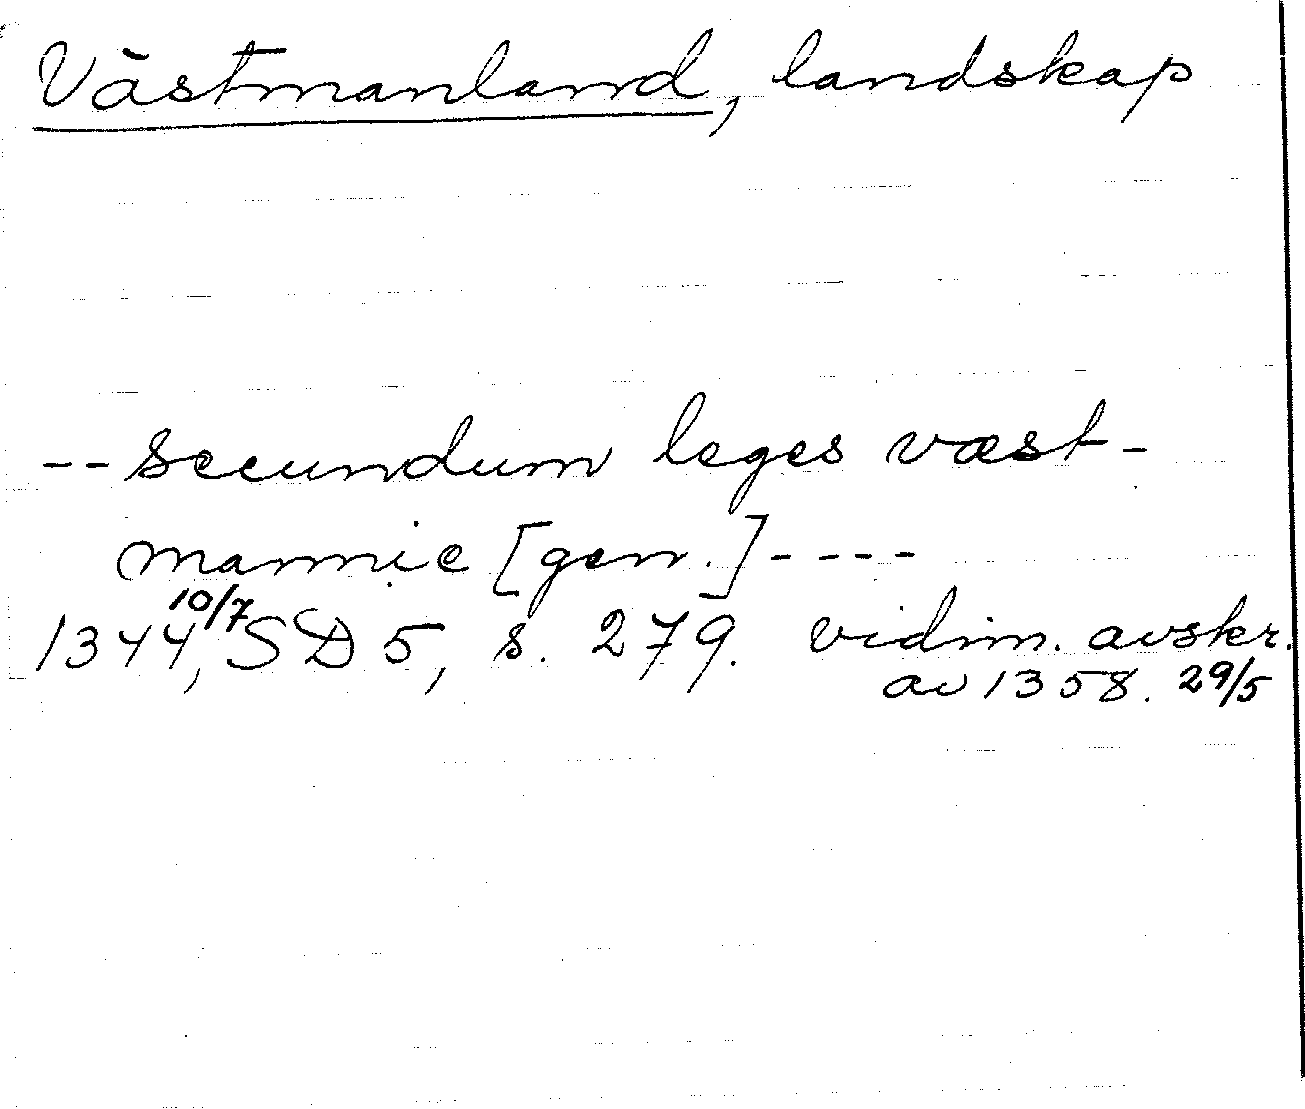 Västmanland, landskap
-- secundum leges væst-
mannie [gen.] ----
1344 10/7, SD 5, s. 279. vidim. avskr.
av 1358. 29/5